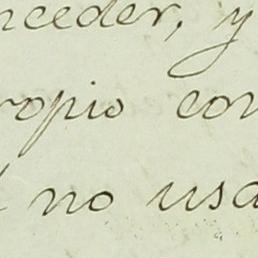 nceder, y
ropio con
l no usa